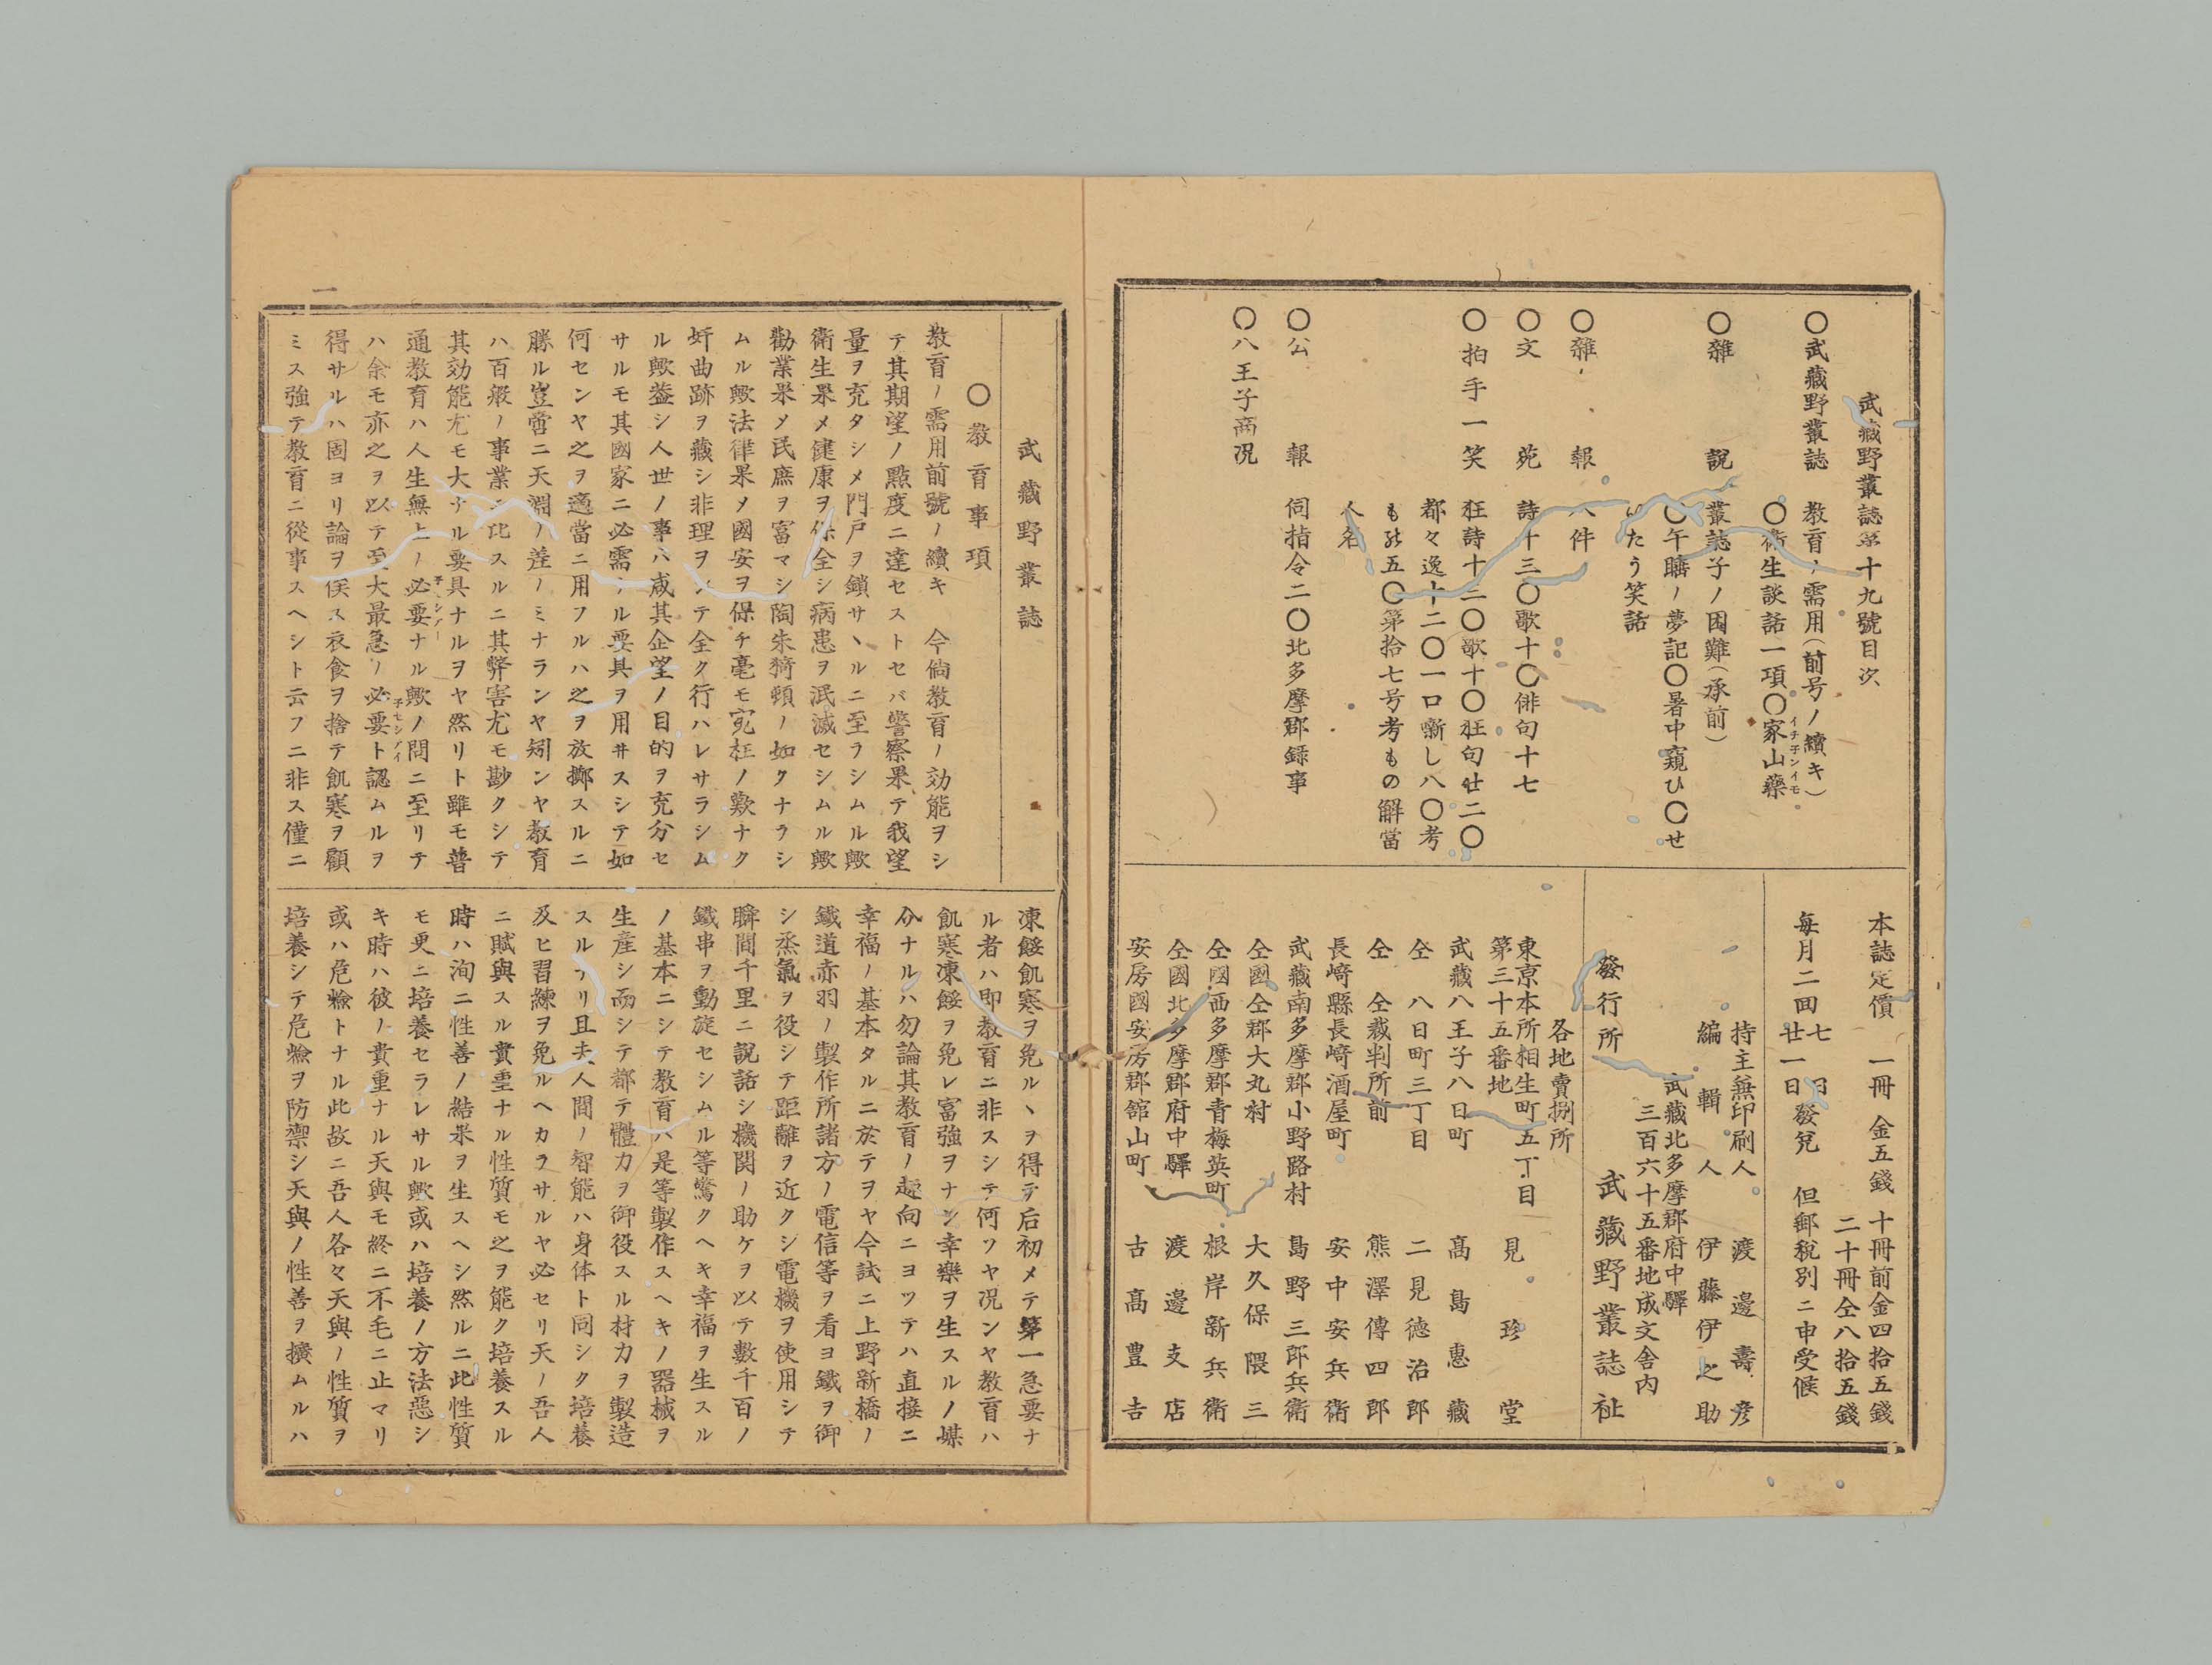 武藏野叢誌第十九號目次
〇武藏野叢誌　教育ノ需用（前号ノ續キ）
〇衛生談話一項〇家山藥
イチ子ンイモ
〇雜　説　叢誌子ノ困難（承前）
〇午睡ノ夢記〇暑中窺ひ〇せ
いたう笑話
〇雜　報　八件
〇文　苑　詩十三〇歌十〇俳句十七
〇拍手一笑　狂詩十二〇歌十〇狂句廿二〇
都々逸十二〇一口噺し八〇考
もの五〇第拾七号考もの解當
人名
〇公　報　伺指令二〇北多摩郡録事
〇八王子商況
本誌定價　一冊　金五錢　十冊前金四拾五錢
二十冊仝八拾五錢
毎月二回　七日　廿一日　發兌　但郵税別ニ申受候
持主無印刷人　渡邊壽彦
編輯人　伊藤伊之助
武藏北多摩郡府中驛
三百六十五番地成文舍内
發行所　武藏野叢誌社
各地賣捌所
東京本所相生町五丁目
第三十五番地　見珍堂
武藏八王子八日町　髙島惠藏
仝　八日町三丁目　二見德治郎
仝　仝裁判所前　熊澤傳四郎
長崎縣長崎酒屋町　安中安兵衛
武藏南多摩郡小野路村　島野三郎兵衛
仝國仝郡大丸村　大久保隈三
仝國西多摩郡青梅英町　根岸新兵衛
仝國北多摩郡府中驛　渡邊支店
安房國安房郡舘山町　古髙豊吉
一
武藏野叢誌
〇教育事項
教育ノ需用前號ノ續キ　今倘教育ノ効能ヲシ
テ其期望ノ點度ニ達セストセバ警察果テ我望
量ヲ充タシメ門戸ヲ鎖サヽルニ至ラシムル歟
衛生果メ健康ヲ保全シ病患ヲ泯滅セシムル歟
勸業果メ民庶ヲ富マシ陶朱猗頓ノ如クナラシ
ムル歟法律果メ國安ヲ保チ毫モ寃枉ノ歎ナク
奸曲跡ヲ藏シ非理ヲシテ全ク行ハレサラシム
ル歟盖シ人世ノ事ハ咸其企望ノ目的ヲ充分セ
サルモ其國家ニ必需ナル要具ヲ用ヰスシテ如
何センヤ之ヲ適當ニ用フルハ之ヲ放擲スルニ
勝ル豈啻ニ天淵ノ差ノミナランヤ矧ンヤ教育
ハ百般ノ事業ニ比スルニ其弊害尤モ尠クシテ
其効能尤モ大ナル要具ナルヲヤ然リト雖モ普
通教育ハ人生無上ノ必要ナル歟ノ問ニ至リテ
ハ余モ亦之ヲ以テ至大最急ノ必要ト認ムルヲ
得サルハ固ヨリ論ヲ俟ス衣食ヲ捨テ飢寒ヲ顧
ミス強テ教育ニ從事スヘシト云フニ非ス僅ニ
凍餒飢寒ヲ免ルヽヲ得テ后初メテ第一急要ナ
ル者ハ即教育ニ非スシテ何ソヤ况ンヤ教育ハ
飢寒凍餒ヲ免レ富強ヲナシ幸樂ヲ生スルノ媒
介ナルハ勿論其教育ノ趣向ニヨツテハ直接ニ
幸福ノ基本タルニ於テヲヤ今試ニ上野新橋ノ
鐵道赤羽ノ製作所諸方ノ電信等ヲ看ヨ鐵ヲ御
シ烝氣ヲ役シテ距離ヲ近クシ電機ヲ使用シテ
瞬間千里ニ説話シ機関ノ助ケヲ以テ數千百ノ
鐵串ヲ動旋セシムル等驚クヘキ幸福ヲ生スル
ノ基本ニシテ教育ハ是等製作スヘキノ器械ヲ
生産シ而シテ都テ體力ヲ御役スル材力ヲ製造
スルナリ且夫人間ノ智能ハ身体ト同シク培養
及ヒ習練ヲ免ルヘカラサルヤ必セリ天ノ吾人
ニ賦與スル貴重ナル性質モ之ヲ能ク培養スル
時ハ洵ニ性善ノ結果ヲ生スヘシ然ルニ此性質
モ更ニ培養セラレサル歟或ハ培養ノ方法惡シ
キ時ハ彼ノ貴重ナル天與モ終ニ不毛ニ止マリ
或ハ危險トナル此故ニ吾人各々天與ノ性質ヲ
培養シテ危險ヲ防禦シ天與ノ性善ヲ擴ムルハ